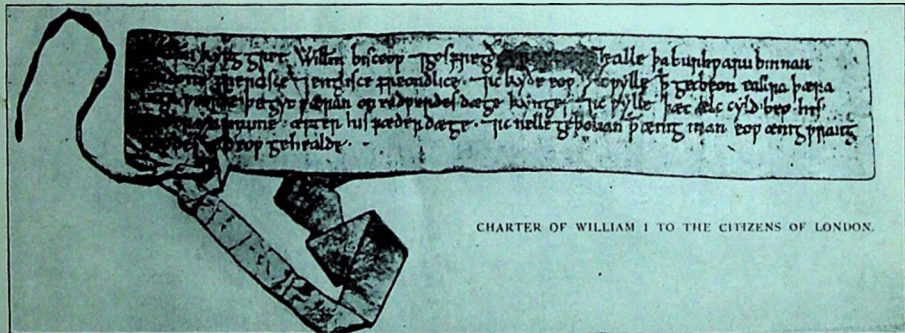 kyng gret Willm bisceop ⁊ gosfregð ealle þa burhƿaru binnan
frencisce ⁊ englisce freondlice ⁊ ic kyðe eoƿ ꝥ ic ƿylle ꝥ get beon eallra þæra
þe gyt ƿæran on eadƿerdes dæge kynges ⁊ ic ƿylle þæt ælc cyld beo his
æfter his fæder dæge ⁊ ic nelle geþolian ꝥ ænig man eoƿ ænig ƿrang
eoƿ gehealde
CHARTER OF WILLIAM I TO THE CITIZENS OF LONDON.